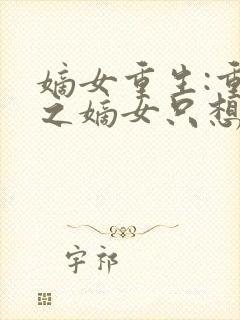 嫡女重生:重
之嫡女只想
宇祁